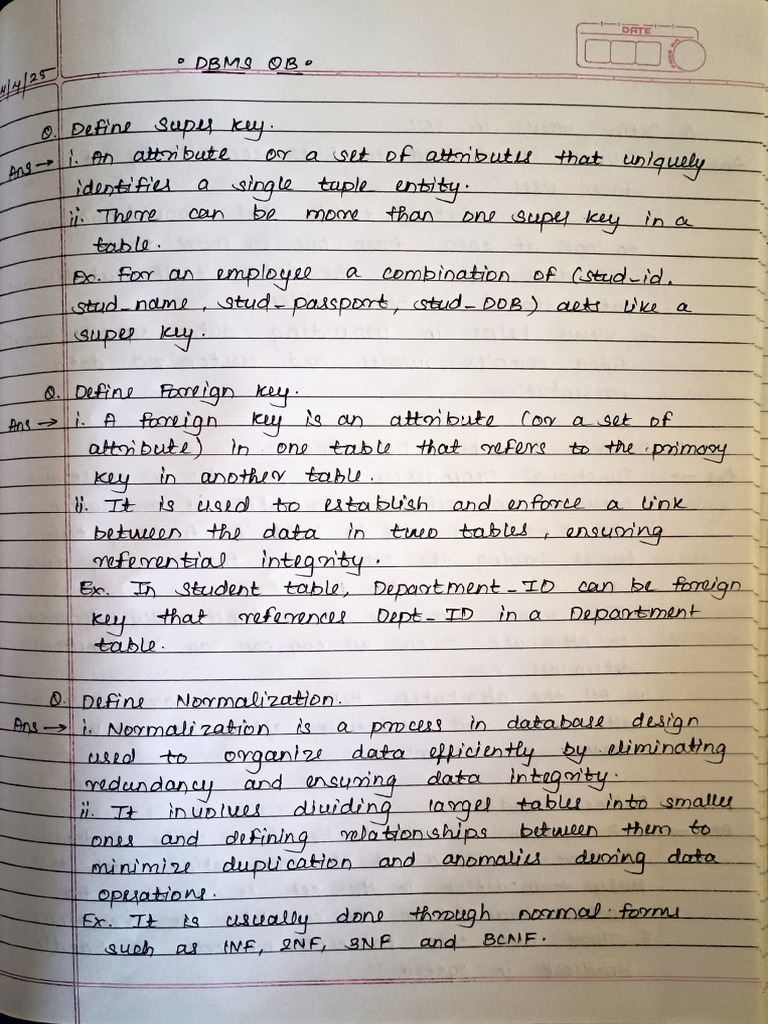 DATE
• DBMS QB •
4/4/25
Q. Define Super Key.
Ans → i. An attribute or a set of attributes that uniquely
identifies a single tuple entity.
ii. There can be more than one super key in a
table.
Ex. For an employee a combination of (stud_id,
stud_name, stud_passport, stud_DOB) acts like a
super key.
Q. Define Foreign Key.
Ans → i. A foreign key is an attribute (or a set of
attribute) in one table that refers to the primary
key in another table.
ii. It is used to establish and enforce a link
between the data in two tables, ensuring
referential integrity.
Ex. In student table, Department_ID can be foreign
key that references Dept_ID in a Department
table.
Q. Define Normalization.
Ans → i. Normalization is a process in database design
used to organize data efficiently by eliminating
redundancy and ensuring data integrity.
ii. It involves dividing larger tables into smaller
ones and defining relationships between them to
minimize duplication and anomalies during data
operations.
Ex. It is usually done through normal forms
such as 1NF, 2NF, 3NF and BCNF.